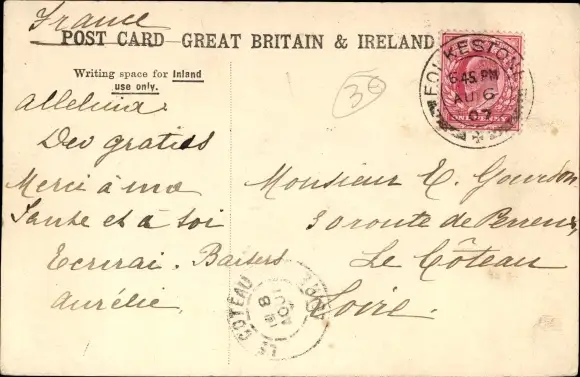 France
POST CARD—GREAT BRITAIN & IRELAND
Writing space for Inland
use only.
FOLKESTONE
6.45 PM
AU 6
07
ONE PENNY
36
Alleluia
Deo gratias
Merci à ma
Tante et à toi
Ecrirai. Baisers
Aurélie
Monsieur E. Gourdon
30 route de
Le Côteau
Loire.
LE COTEAU
LOIRE
8
AOU